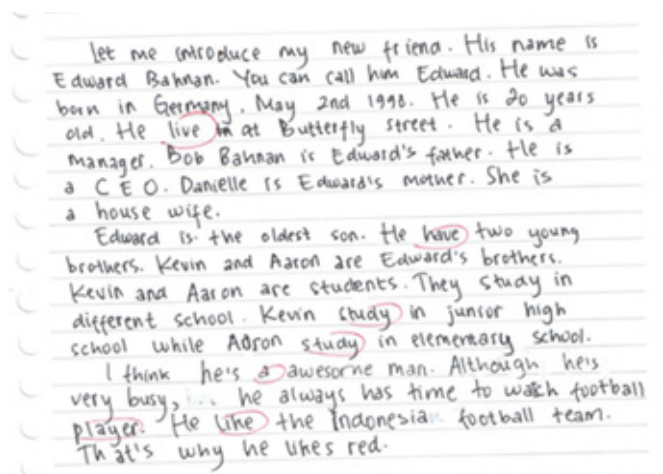 Let me introduce my new friend. His name is
Edward Bahnan. You can call him Edward. He was
born in Germany, May 2nd 1998. He is 20 years
old. He live at Butterfly street. He is a
manager. Bob Bahnan is Edward's father. He is
a CEO. Danielle is Edward's mother. She is
a house wife.
Edward is the oldest son. He have two young
brothers. Kevin and Aaron are Edward's brothers.
Kevin and Aaron are students. They study in
different school. Kevin study in junior high
school while Aaron study in elementary school.
I think he's a awesome man. Although he's
very busy, he always has time to watch football
player. He like the Indonesian football team.
That's why he likes red.